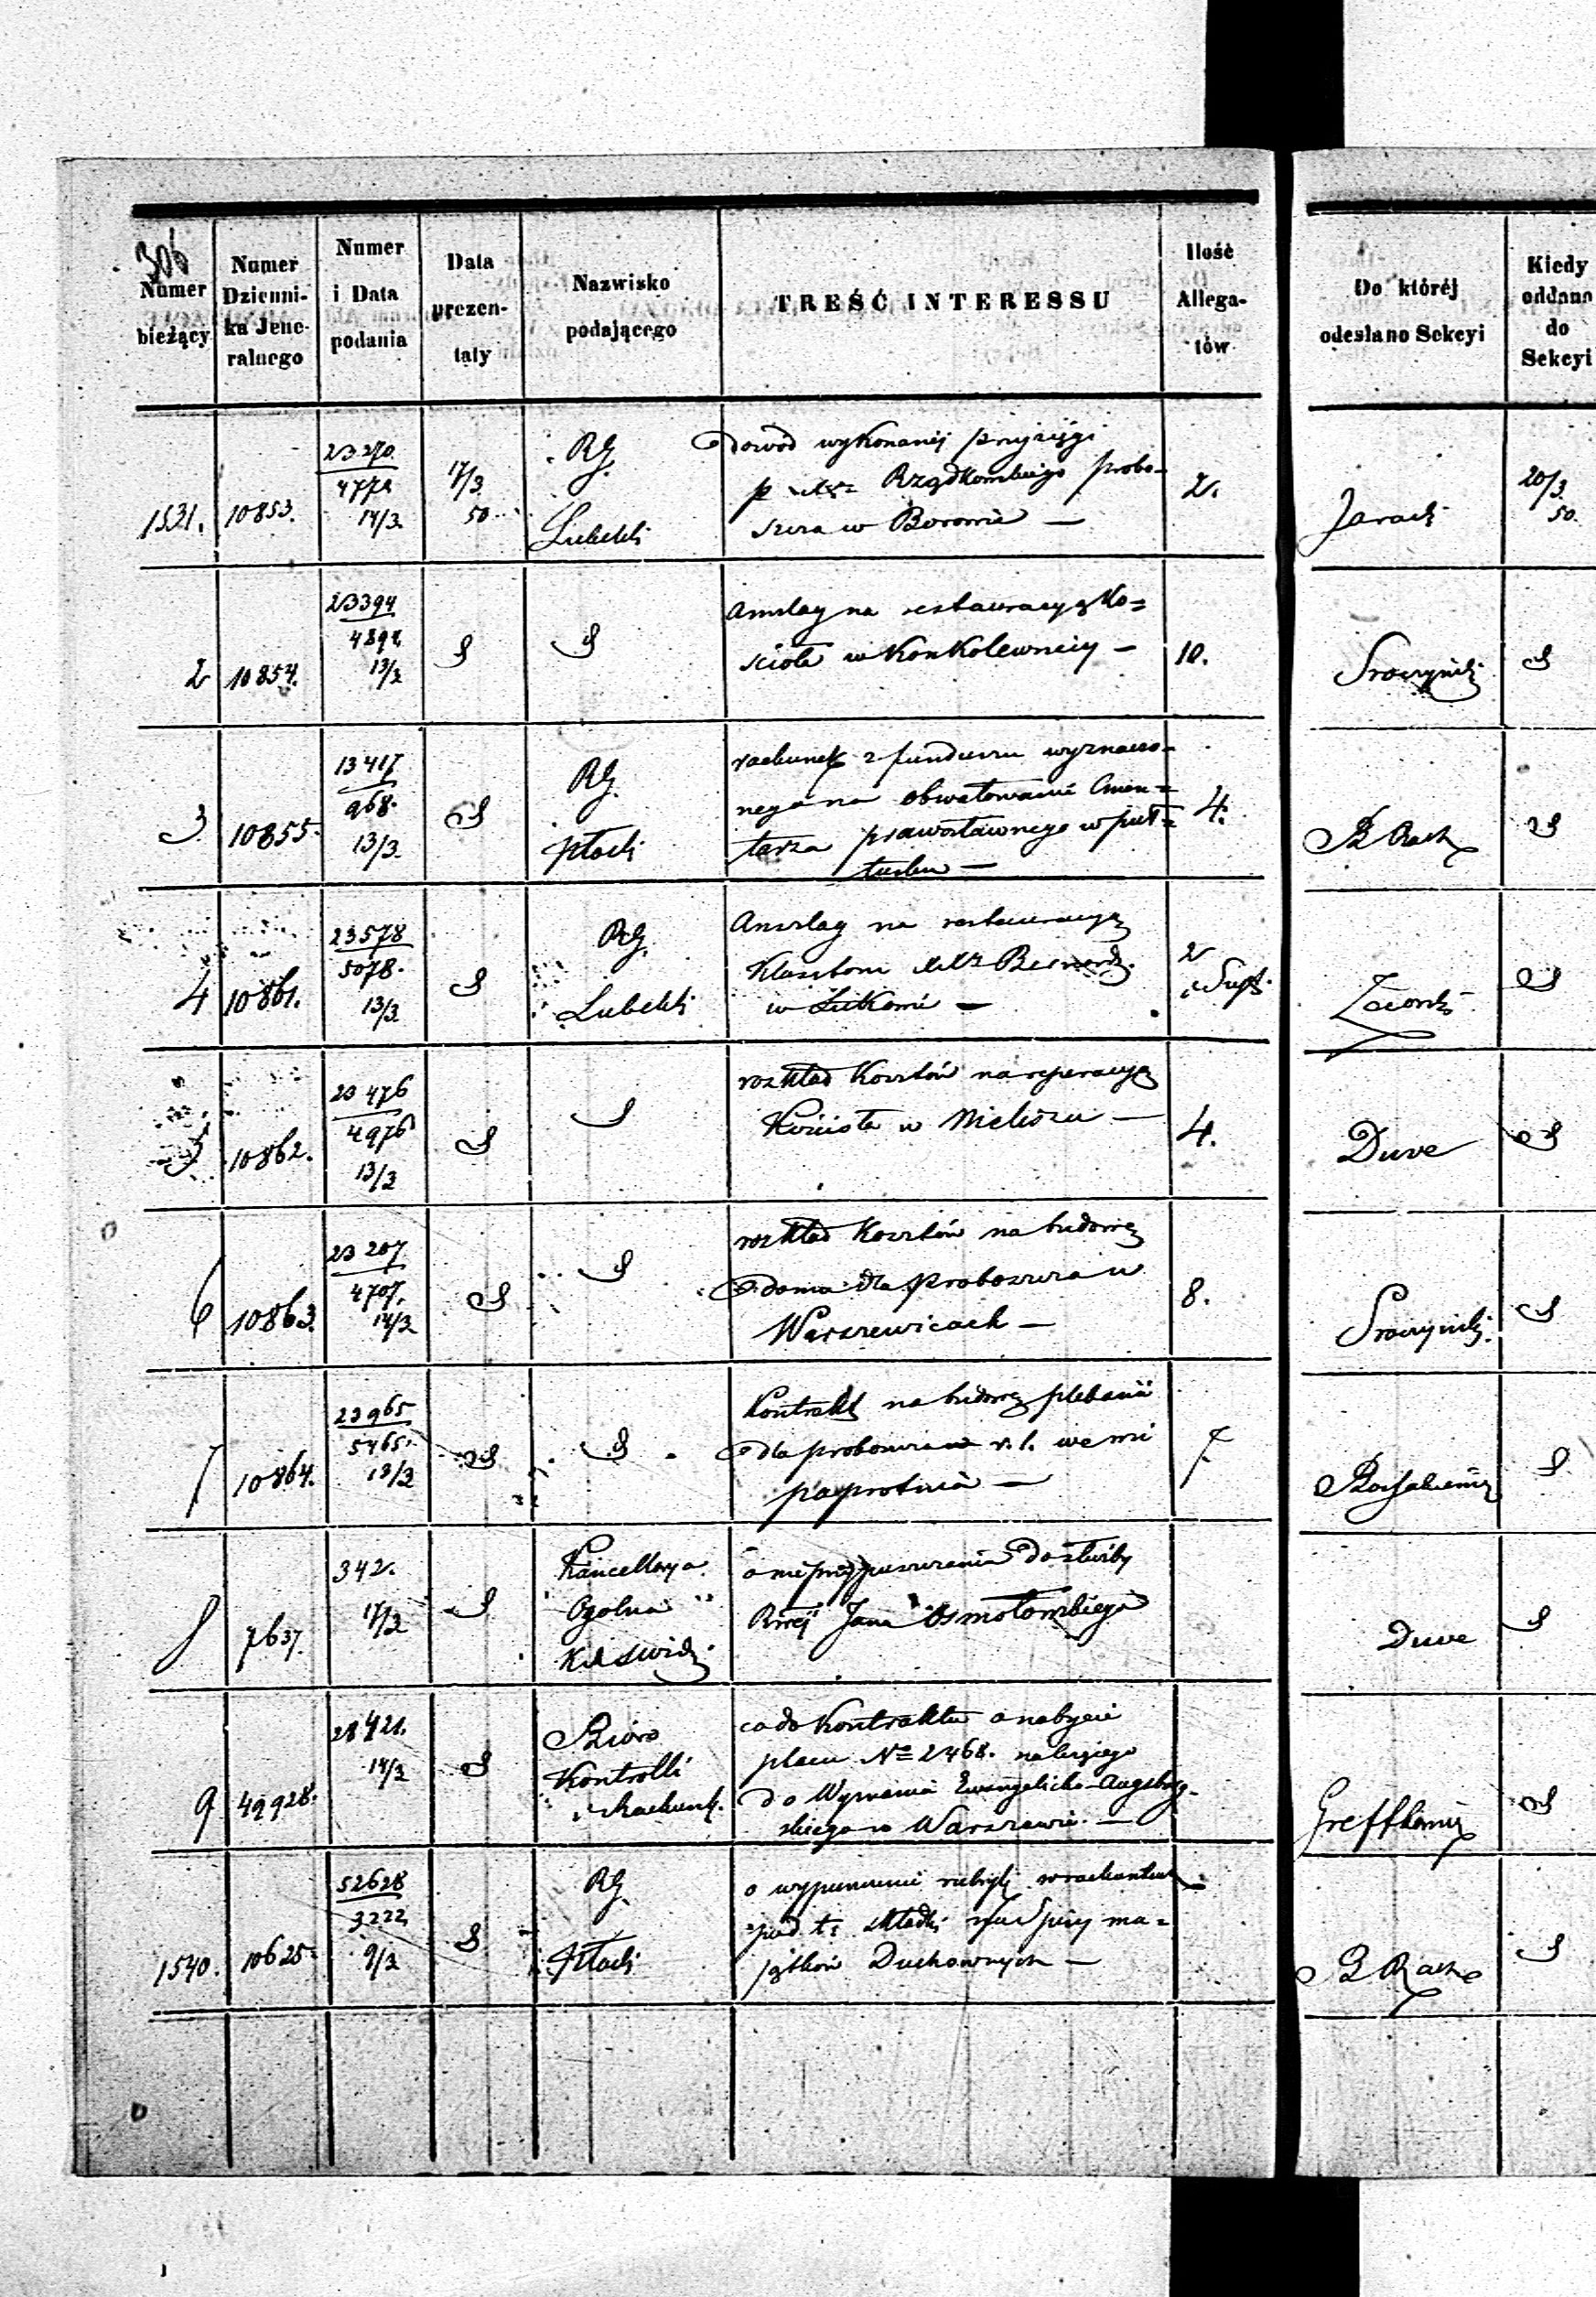 306
Numer bieżący
Numer Dzienni-ka Jene-ralnego
Numer i Data podania
Data prezen-taty
Nazwisko podającego
TREŚĆ INTERESSU
Ilość Allega-tów
Do któréj odesłano Sekcyi
Kiedy oddano do Sekcyi
1531. 10853. 23270 4770 14/3 17/3 50 RG. Lubelski
dowód wykonanéj przysięgi
p Rządkowskiego probo-
szcza w Borowie —
2. Jarach 20/3 50.
2 10854. 23394 4894 13/3
Anszlag na restauracyą Ko=
ścioła w Konkolewnicy —
10. Sroczyński
3 10855. 13417 968. 13/3 RG. Płocki
rachunek z funduszu wyznaczo-
nego na obwałowanie Cmen=
tarza prawosławnego w Puł=
tusku —
4.
4 10861. 23578 5078. 13/3 RG. Lubelski
Anszlag na restauracyą
Klasztoru Bernard.
w Łukowie —
2
5 10862. 23476 4976 13/3
rozkład Kosztów na reperacyą
Kościoła w Nieliszu —
4. Duve
6 10863. 23207 4707. 14/3
rozkład Kosztów na budowę
domu dla proboszcza w
Warszewicach —
8. Sroczyński.
7 10864. 23965 5465. 13/3
Kontrakt na budowę plebanii
dla proboszcza r. l. we wsi
paprotnia —
7
8 7637. 342. 17/3 Kancellarya Ogólna
o nieprzypuszczenia do służby
Jana Osmołowskiego
Duve
9 49928. 28421. 14/3 Biuro Kontrolli i Rachunk.
co do Kontraktu o nabycie
placu No 2468. należącego
do Wyznania Ewangelicko-Augsburg-
skiego w Warszawie. —
1540. 10625. 52628 3222 9/3 RG. Płocki
o wypełnienie rubryki w rachunku
pod t:
jątków Duchownych —